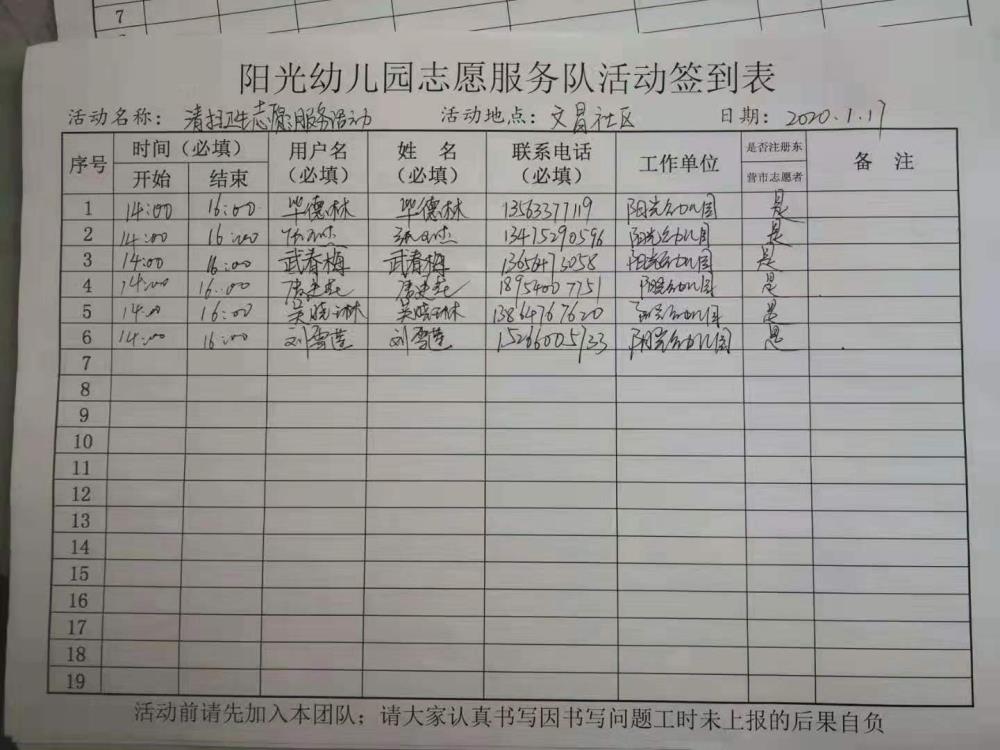 7
阳光幼儿园志愿服务队活动签到表
活动名称： 清扫卫生志愿服务活动 活动地点：文昌社区 日期：2020.1.17
序号 时间（必填） 用户名（必填） 姓 名（必填） 联系电话（必填） 工作单位 是否注册东营市志愿者 备 注
开始 结束
1 14:00 16:00 毕德林 毕德林 13563377119 阳光幼儿园 是
2 14:00 16:00 13475290596 阳光幼儿园 是
3 14:00 16:00 武春梅 武春梅 13656473058 阳光幼儿园 是
4 14:00 16:00 18954007751 阳光幼儿园 是
5 14:00 16:00 吴晓琳 吴晓琳 13864767620 阳光幼儿园 是
6 14:00 16:00 刘雪莲 刘雪莲 15266005733 阳光幼儿园 是
7
8
9
10
11
12
13
14
15
16
17
18
19
活动前请先加入本团队；请大家认真书写因书写问题工时未上报的后果自负